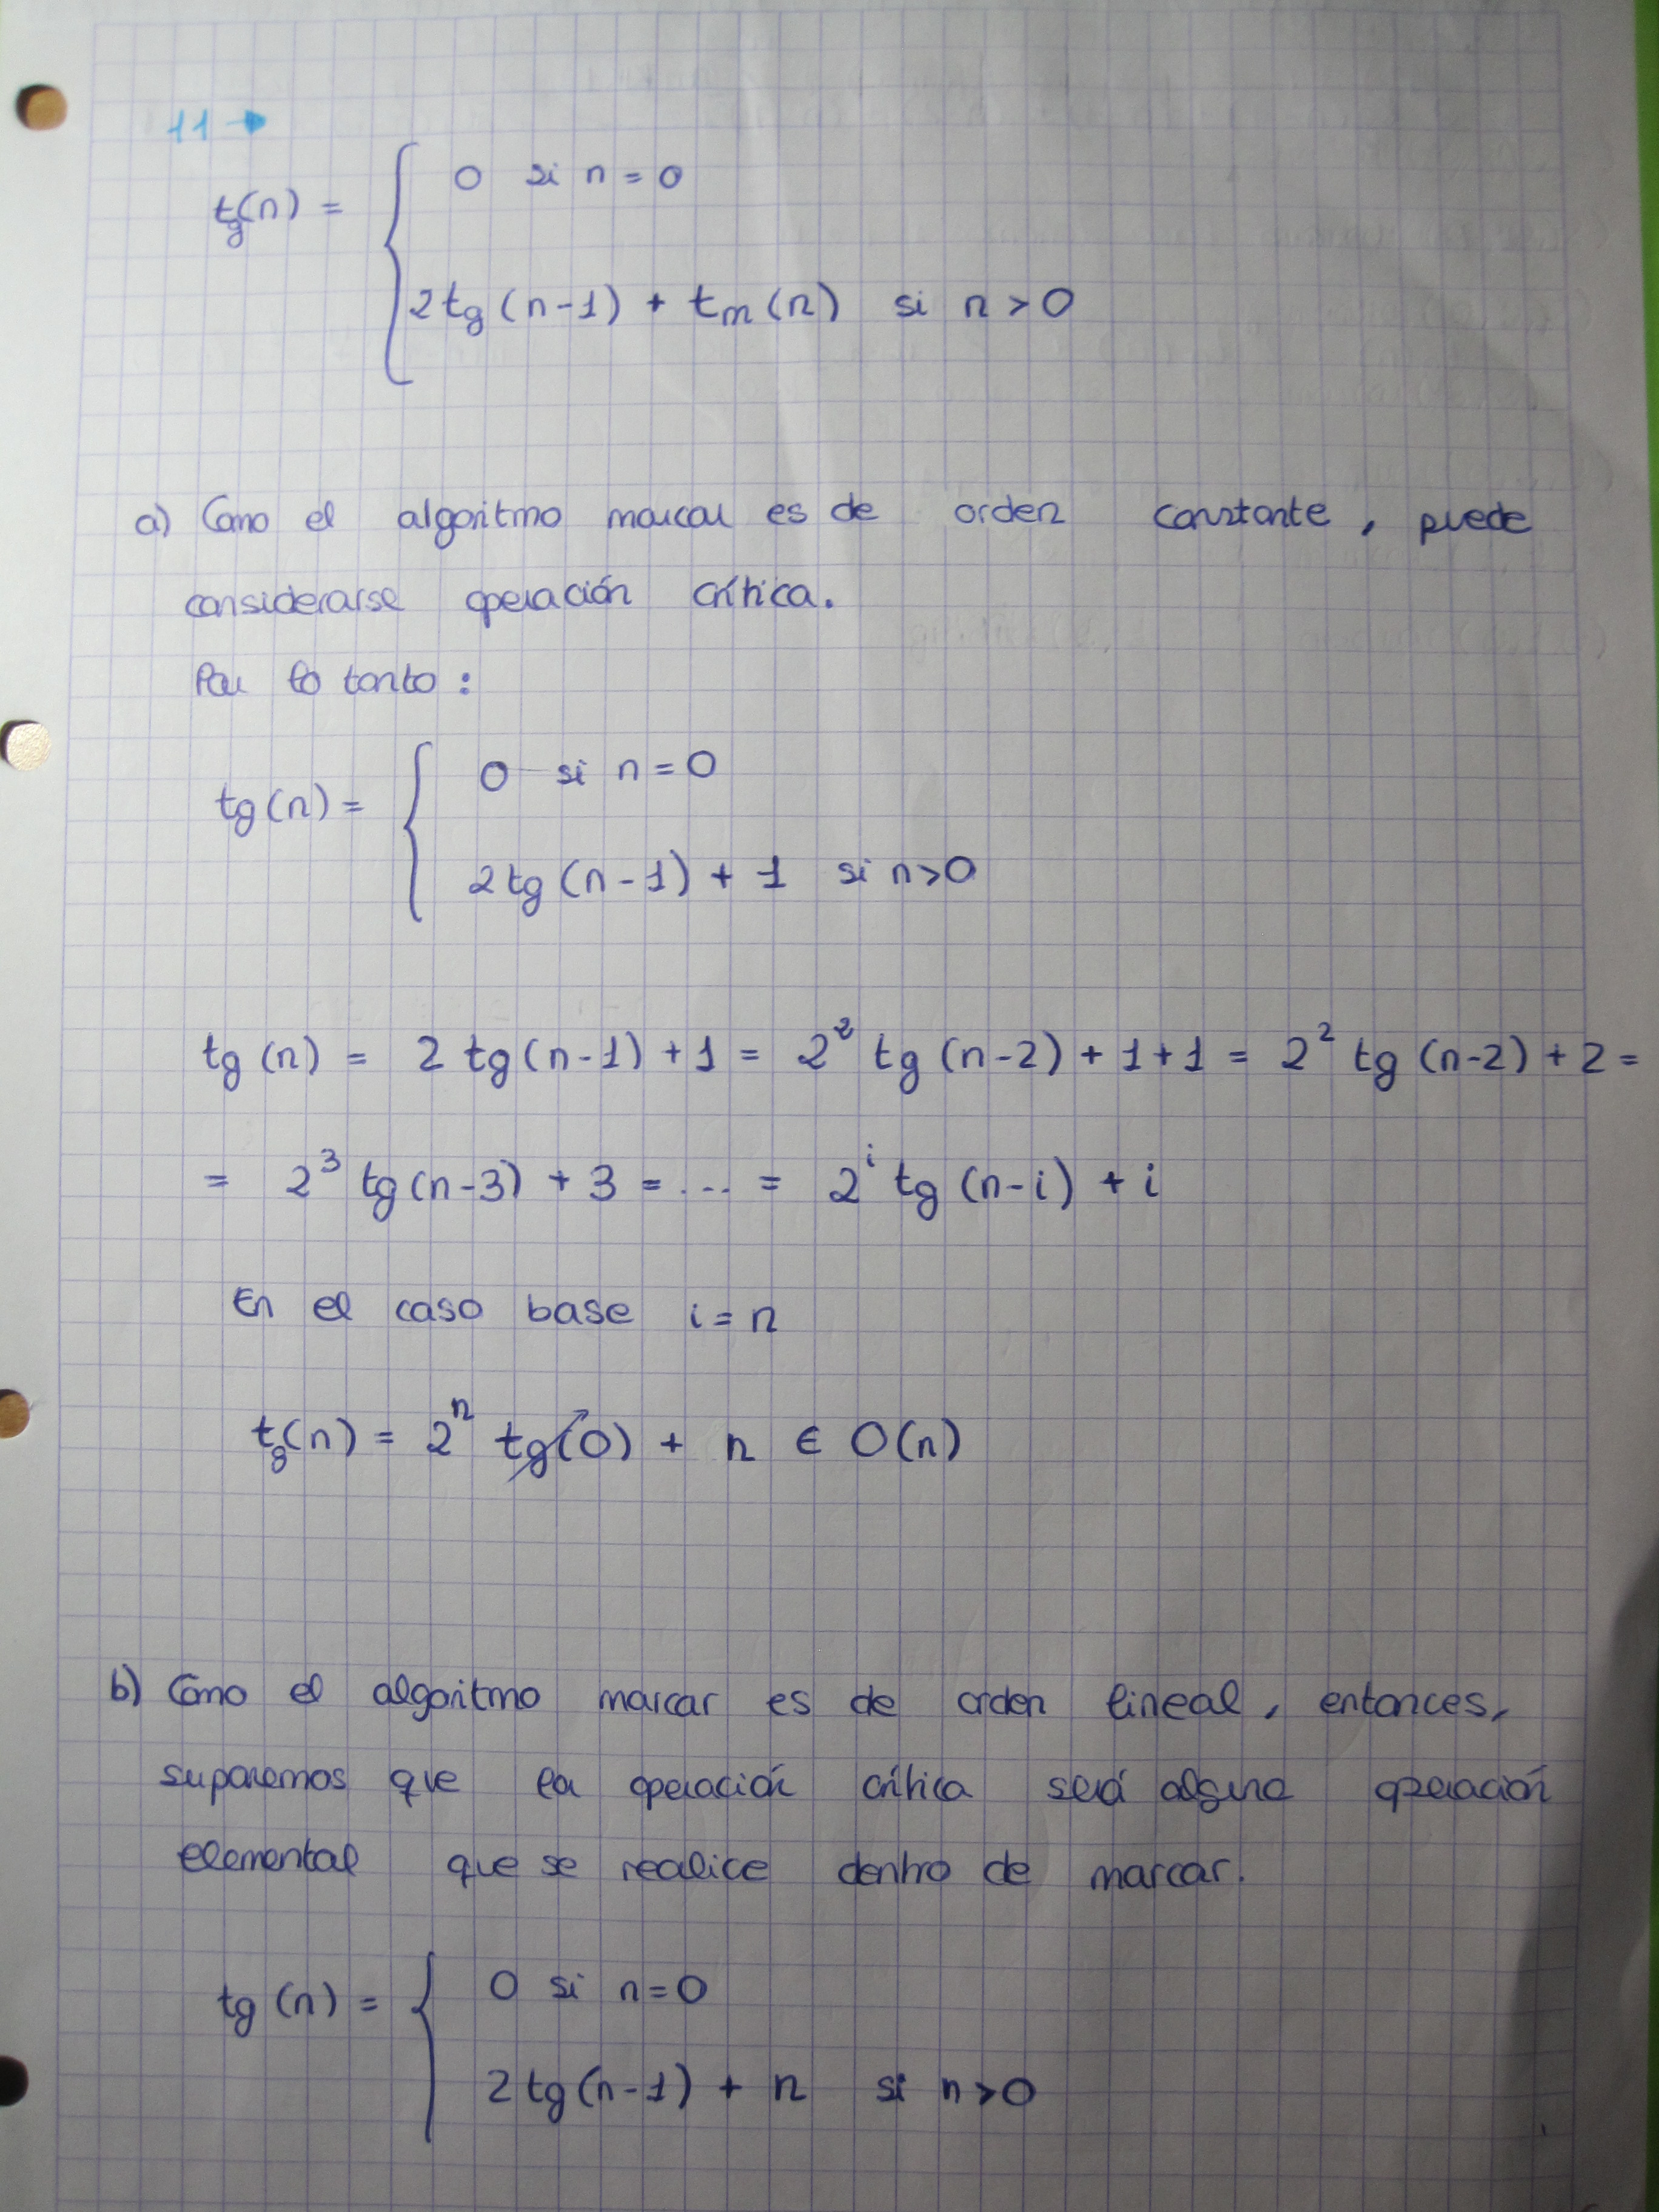 11 →
tg(n) = { 0 si n = 0
2tg(n-1) + tm(n) si n > 0
a) Como el algoritmo marcar es de orden constante, puede
considerarse operación crítica.
Por lo tanto:
tg(n) = { 0 si n = 0
2tg(n-1) + 1 si n>0
tg(n) = 2 tg(n-1) + 1 = 2² tg(n-2) + 1 + 1 = 2² tg(n-2) + 2 =
= 2³ tg(n-3) + 3 = ... = 2ⁱ tg(n-i) + i
En el caso base i = n
tg(n) = 2ⁿ tg(0) + n ∈ O(n)
b) Como el algoritmo marcar es de orden lineal, entonces,
suponemos que la operación crítica será alguna operación
elemental que se realice dentro de marcar.
tg(n) = { 0 si n=0
2tg(n-1) + n si n>0